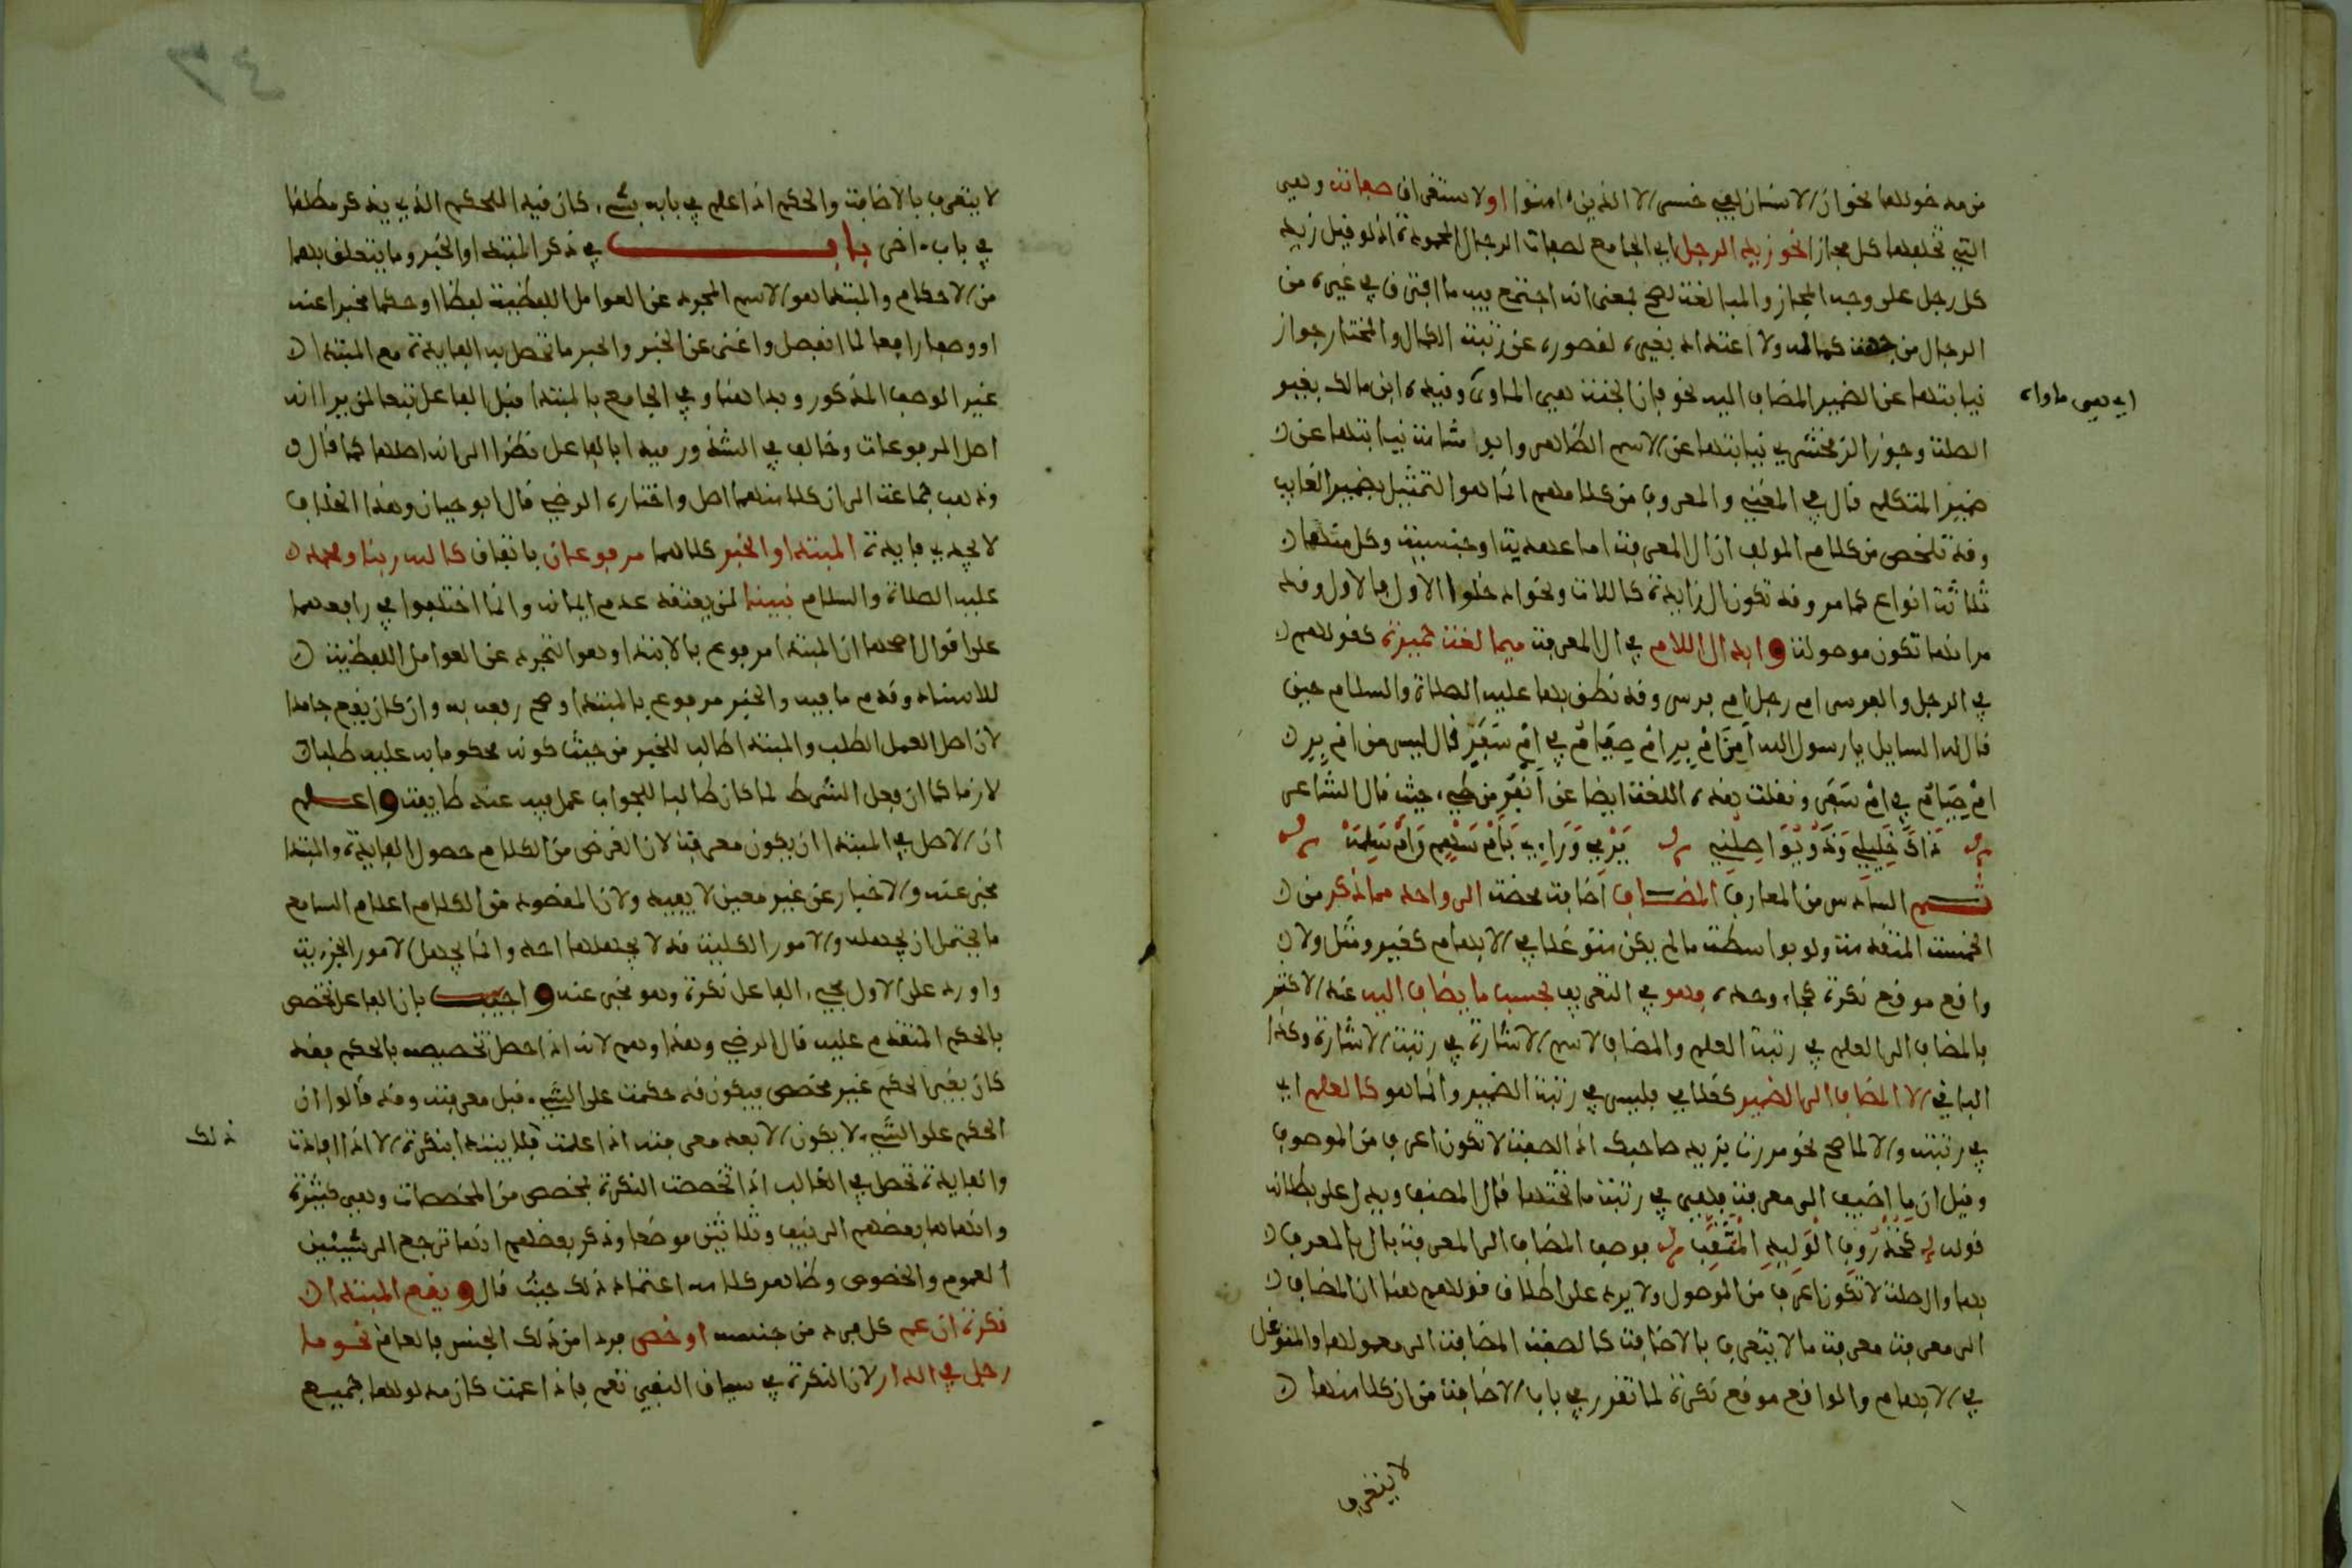 من مدخولها نحو ان الانسان لفي خسر الا الذين ءامنوا او لاستغراق صفاته وهي
التي تخلفها كل مجازا نحو زيد الرجل اي الجامع لصفات الرجال المحمودة اذ لو قيل زيد
كل رجل على وجه المجاز والمبالغة لصح بمعنى انه اجتمع فيه ما افترق في غيره من
الرجال من جهة كماله ولا اعتداد بغيره لقصوره عن رتبة الكمال والمختار جواز
نيابتها عن الضمير المضاف اليه نحو فان الجنة هي الماوى وقيده ابن مالك بغير
اي هي ماواه
الصلة وجوز الزمخشري نيابتها عن الاسم الظاهر وابو شامة نيابتها عن
ضمير المتكلم قال في المغني والمعروف من كلامهم انما هو التمثيل بضمير الغايب
وقد تلخص من كلام المولف ان ال المعرفة اما عهدية او جنسية وكل منهما
ثلاثة انواع كما مر وقد تكون ال زايدة كاللات ونحو ادخلوا الاول فالاول وقد
مر انها تكون موصولة وابدال اللام في ال المعرفة ميما لغة حميرية كقولهم
في الرجل والفرس ام رجل ام فرس وقد نطق بها عليه الصلاة والسلام حين
قال له السايل يا رسول الله أمِنَ امْ بِرِ امْ صِيَامُ في امْ سَفَرِ فقال ليس من امْ بِرِ
امْ صِيَامُ في امْ سَفَرِ ونقلت هذه اللغة ايضا عن نفر من طيء حيث قال الشاعر
ذاك خليلي وذو يواصلني يرمي وراءيه بامْ سهم وامْ سلمة
ثم السادس من المعارف المضاف اضافة محضة الى واحد مما ذكر من
الخمسة المتقدمة ولو بواسطة ما لم يكن متوغلا في الابهام كغير ومثل ولا
واقع موقع نكرة كجاء وحده وهو في التعريف بحسب ما يضاف اليه عند الاكثر
فالمضاف الى العلم في رتبة العلم والمضاف لاسم الاشارة في رتبة الاشارة وكذا
الباقي الا المضاف الى الضمير كغلامي فليس في رتبة الضمير وانما هو كالعلم اي
في رتبته والا لما صح نحو مررت بزيد صاحبك اذ الصفة لا تكون اعرف من الموصوف
وقيل ان ما اضيف الى معرفة فهي في رتبة ما تحتها قال المصنف ويدل على بطلانه
قوله كخذروف الوليد المثقب فوصف المضاف الى المعرفة بال بالمعرف
بها والصلة لا تكون اعرف من الموصول ولا يرد على اطلاق قولهم هنا ان المضاف
الى معرفة معرفة ما لا يتعرف بالاضافة كالصفة المضافة الى معمولها والمتوغل
في الابهام والواقع موقع نكرة لما تقرر في باب الاضافة من ان كلا منها
لا يتعرف
لا يتعرف بالاضافة والحكم اذا علم في بابه بشيء كان قيدا للحكم الذي يذكر مطلقا
في باب ءاخر باب في ذكر المبتدا والخبر وما يتعلق بهما
من الاحكام والمبتدا هو الاسم المجرد عن العوامل اللفظية لفظا او حكما مخبرا عنه
او وصفا رافعا لما انفصل واغنى عن الخبر والخبر ما تحصل به الفايدة مع المبتدا
غير الوصف المذكور وبدا هنا وفي الجامع بالمبتدا قبل الفاعل تبعا لمن يرا انه
اصل المرفوعات وخالف في الشذور فبدا بالفاعل نظرا الى انه اصلها كما قال
وذهب جماعة الى ان كلا منهما اصل واختاره الرضي قال ابو حيان وهذا الخلاف
لا يجدي فايدة المبتدا والخبر كلاهما مرفوعان باتفاق كالله ربنا ومحمد
عليه الصلاة والسلام نبينا لمن يعتقد عدم ايمانه وانما اختلفوا في رافعهما
على اقوال اصحها ان المبتدا مرفوع بالابتدا وهو التجرد عن العوامل اللفظية
للاسناد وقدم ما فيه والخبر مرفوع بالمبتدا وصح رفعه به وان كان يقع جامدا
لان اصل العمل الطلب والمبتدا طالب للخبر من حيث كونه محكوما به عليه طلبا
لازما كما ان فعل الشرط لما كان طالبا للجواب عمل فيه عند طايفة واعلم
ان الاصل في المبتدا ان يكون معرفة لان الغرض من الكلام حصول الفايدة والمبتدا
مخبر عنه والاخبار عن غير معين لا يفيد ولان المقصود من الكلام اعلام السامع
ما يحتمل ان يجهله والامور الكلية قد لا يجهلها احد وانما يجهل الامور الجزءية
واورد على الاول مجيء الفاعل نكرة وهو مخبر عنه واجيب بان الفاعل تخصص
بالحكم المتقدم عليه قال الرضي وهذا وهم لانه اذا حصل تخصيصه بالحكم فقد
كان بغير الحكم غير مخصص فيكون قد حكمت على الشيء قبل معرفته وقد قالوا ان
الحكم على الشيء لا يكون الا بعد معرفته اذا علمت ذلك فلا يبتدا بنكرة الا اذا افادت
والفايدة تحصل في الغالب اذا تخصصت النكرة بمخصص من المخصصات وهي كثيرة
وانهاها بعضهم الى نيف وثلاثين موضعا وذكر بعضهم انها ترجع الى شيئين
العموم والخصوص وظاهر كلامه اعتماد ذلك حيث قال ويقع المبتدا
نكرة ان عم كل فرد من جنسه او خص فردا من ذلك الجنس فالعام نحو ما
رجل في الدار لان النكرة في سياق النفي تعم فاذا عمت كان مدلولها جميع